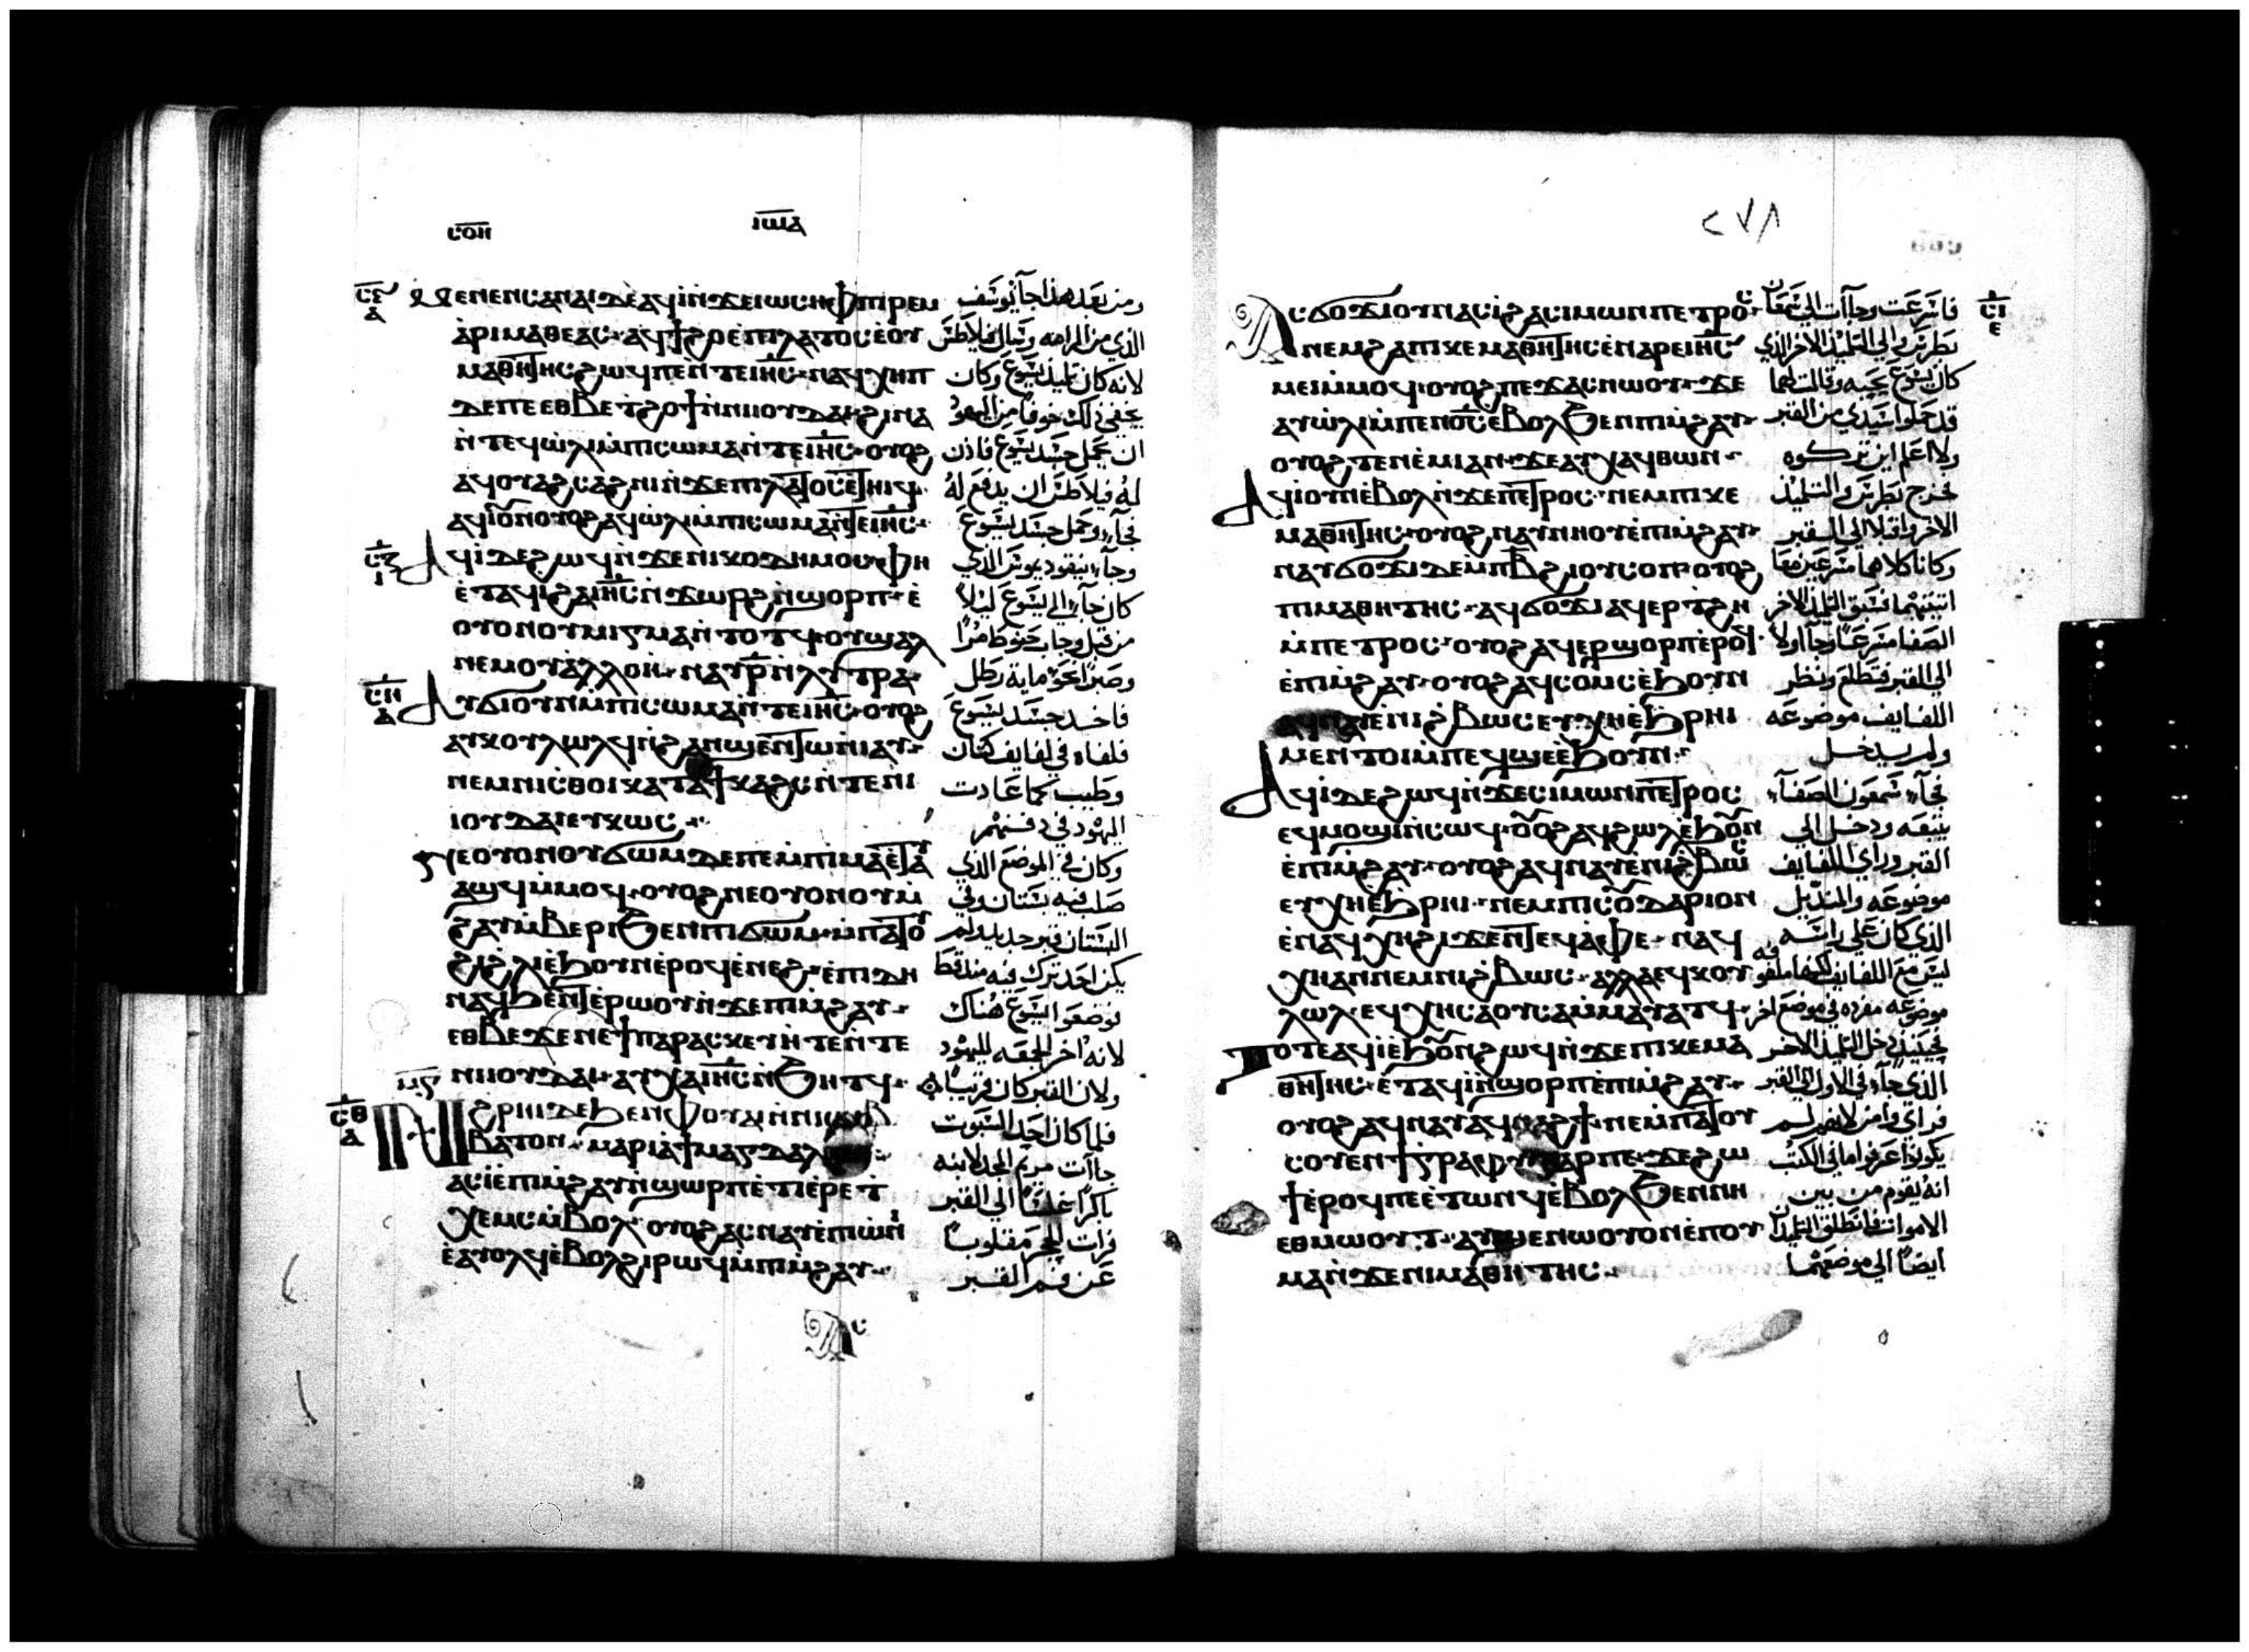 ⲥⲟⲏ ⲓⲱⲁ
ⲙⲉⲛⲉⲛⲥⲁⲛⲁⲓ ⲇⲉ ⲁϥⲓ ⲛ̀ϫⲉ ⲓⲱⲥⲏⲫ ⲡⲓⲣⲉⲙ
ⲁⲣⲓⲙⲁⲑⲉⲁⲥ ⲁϥϯϩⲟ ⲉ̀ⲡⲓⲗⲁⲧⲟⲥ ⲉ̀ⲟⲩ
ⲙⲁⲑⲏⲧⲏⲥ ϩⲱϥ ⲡⲉ ⲛ̀ⲧⲉ ⲓⲏⲥ ⲛⲁϥⲭⲏⲡ
ⲇⲉ ⲡⲉ ⲉⲑⲃⲉ ⲧϩⲟϯ ⲛ̀ⲛⲓⲟⲩⲇⲁⲓ ϩⲓⲛⲁ
ⲛ̀ⲧⲉϥⲱ̀ⲗⲓ ⲙ̀ⲡⲓⲥⲱⲙⲁ ⲛ̀ⲧⲉ ⲓⲏⲥ ⲟⲩⲟϩ
ⲁϥⲟⲩⲁϩⲥⲁϩⲛⲓ ⲛ̀ϫⲉ ⲡⲓⲗⲁⲧⲟⲥ ⲉ̀ⲧⲏⲓϥ
ⲁϥⲓ̀ ⲟⲩⲛ ⲟⲩⲟϩ ⲁϥⲱ̀ⲗⲓ ⲙ̀ⲡⲓⲥⲱⲙⲁ ⲛ̀ⲧⲉ ⲓⲏⲥ
ⲁϥⲓ̀ ⲇⲉ ϩⲱϥ ⲛ̀ϫⲉ ⲛⲓⲕⲟⲇⲏⲙⲟⲥ ⲫⲏ
ⲉ̀ⲧⲁϥⲓ̀ ϩⲁ ⲓⲏⲥ ⲛ̀ϫⲱⲣϩ ⲛ̀ϣⲟⲣⲡ ⲉ̀
ⲟⲩⲟⲛ ⲟⲩⲙⲓⲅⲙⲁ ⲛ̀ⲧⲟⲧϥ ⲟⲩϣⲁⲗ
ⲛⲉⲙ ⲟⲩⲁ̀ⲗⲗⲟⲏ ⲛⲁⲩ ⲣ̅ ⲛ̀ⲗⲩⲧⲣⲁ
ⲁⲩϭⲓ ⲟⲩⲛ ⲙ̀ⲡⲓⲥⲱⲙⲁ ⲛ̀ⲧⲉ ⲓⲏⲥ ⲟⲩⲟϩ
ⲁⲩⲕⲟⲩⲗⲱⲗϥ ⲛ̀ϩⲁⲛϣⲉⲛⲧⲱ ⲛ̀ⲓⲁⲩ
ⲛⲉⲙ ⲛⲓⲥⲑⲟⲓ ⲕⲁⲧⲁ ϯⲕⲁϩⲥ ⲛ̀ⲧⲉ ⲛⲓ
ⲓⲟⲩⲇⲁⲓ ⲉⲩⲕⲱⲥ
ⲛⲉ ⲟⲩⲟⲛ ⲟⲩϭⲱⲙ ⲇⲉ ⲡⲉ ⲙ̀ⲡⲓⲙⲁ ⲉ̀ⲧⲁⲩ
ⲁϣϥ ⲙ̀ⲙⲟϥ ⲟⲩⲟϩ ⲛⲉ ⲟⲩⲟⲛ ⲟⲩⲙ̀
ϩⲁⲩ ⲙ̀ⲃⲉⲣⲓ ϧⲉⲛ ⲡⲓϭⲱⲙ ⲙ̀ⲡⲁⲧⲟⲩ
ϩⲓ ϩⲗⲓ ⲉ̀ϧⲟⲩⲛ ⲉ̀ⲣⲟϥ ⲉ̀ⲛⲉϩ ⲉ̀ⲡⲓⲇⲏ
ⲛⲁϥϧⲉⲛⲧ ⲉ̀ⲣⲱⲟⲩ ⲛ̀ϫⲉ ⲡⲓⲙ̀ϩⲁⲩ
ⲉⲑⲃⲉ ϫⲉ ⲛⲉ ϯⲡⲁⲣⲁⲥⲕⲉⲩⲏ ⲧⲉ ⲛ̀ⲧⲉ
ⲛⲓⲓⲟⲩⲇⲁⲓ ⲁⲩⲭⲁ ⲓⲏⲥ ⲛ̀ϧⲏⲧϥ
ⲛ̀ϩⲣⲏⲓ ⲇⲉ ϧⲉⲛ ⲫⲟⲩⲁⲓ ⲛ̀ⲛⲓⲥⲁⲃ
ⲃⲁⲧⲟⲛ ⲙⲁⲣⲓⲁ ϯⲙⲁⲅⲇⲁⲗⲓⲛⲏ
ⲁⲥⲓ̀ ⲉ̀ⲡⲓⲙ̀ϩⲁⲩ ⲛ̀ϣⲱⲣⲡ ⲉ̀ⲧⲓ ⲉ̀ⲣⲉ ⲧ̀
ⲭⲉⲙⲥ ⲙ̀ⲃⲟⲗ ⲟⲩⲟϩ ⲁⲥⲛⲁⲩ ⲉ̀ⲡⲓⲱ̀ⲛⲓ
ⲉ̀ⲁⲩⲟⲗϥ ⲉ̀ⲃⲟⲗ ϩⲓ ⲣⲱϥ ⲙ̀ⲡⲓⲙ̀ϩⲁⲩ
ⲁⲥ
ومن بعد هذا جآ يوسف
الذي من الرامه وسال فيلاطس
لانه كان تلميذ يسوع وكان
يخفي ذلك خوفا من اليهود
ان يحمل جسد يسوع فاذن
له فيلاطس ان يدفع له
فجآ وحمل جسد يسوع
وجآ نيقوديموس الذي
كان جآ الي يسوع ليلا
من قبل وجاب حنوط مرا
وصبرا نحو ماية رطل
فاخد جسد يسوع
فلفاه في لفايف كتان
وطيب كما عادت
اليهود في دفنهم
وكان في الموضع الذي
صلب فيه بستان وفي
البستان قبر جديد لم
يكن احد ترك فيه منذ قط
فوضعوا يسوع هناك
لانه اخر الجمعه لليهود
ولان القبر كان قريبا
فلما كان احد السبوت
جاآت مريم المجدلانيه
باكرا غلسا الي القبر
فرات الحجر مقلوبا
عن فم القبر
٢٧٨
ⲁⲥϭⲟϫⲓ ⲟⲩⲛ ⲁⲥⲓ̀ ϩⲁ ⲥⲓⲙⲱⲛ ⲡⲉⲧⲣⲟⲥ
ⲛⲉⲙ ϩⲁ ⲡⲓⲕⲉⲙⲁⲑⲏⲧⲏⲥ ⲉ̀ⲛⲁⲣⲉ ⲓⲏⲥ
ⲙⲉⲓ ⲙ̀ⲙⲟϥ ⲟⲩⲟϩ ⲡⲉϫⲁⲥ ⲛⲱⲟⲩ ϫⲉ
ⲁⲩⲱ̀ⲗⲓ ⲙ̀ⲡⲉⲛⲟⲥ ⲉ̀ⲃⲟⲗ ϧⲉⲛ ⲡⲓⲙ̀ϩⲁⲩ
ⲟⲩⲟϩ ⲧⲉⲛⲉ̀ⲙⲓ ⲁⲛ ϫⲉ ⲁⲩⲭⲁϥ ⲑⲱⲛ
ⲁϥⲓ̀ ⲟⲩⲛ ⲉ̀ⲃⲟⲗ ⲛ̀ϫⲉ ⲡⲉⲧⲣⲟⲥ ⲛⲉⲙ ⲡⲓⲕⲉ
ⲙⲁⲑⲏⲧⲏⲥ ⲟⲩⲟϩ ⲛⲁⲩⲛⲏⲟⲩ ⲉ̀ⲡⲓⲙ̀ϩⲁⲩ
ⲛⲁⲩϭⲟϫⲓ ⲇⲉ ⲙ̀ⲡⲃ̅ ϩⲓ ⲟⲩⲥⲟⲡ ⲟⲩⲟϩ
ⲡⲓⲙⲁⲑⲏⲧⲏⲥ ⲁϥϭⲟϫⲓ ⲁϥⲉⲣⲧϩⲏ
ⲙ̀ⲡⲉⲧⲣⲟⲥ ⲟⲩⲟϩ ⲁϥⲉⲣϣⲟⲣⲡ ⲉ̀ⲣⲟϥ
ⲉ̀ⲡⲓⲙ̀ϩⲁⲩ ⲟⲩⲟϩ ⲁϥⲥⲟⲙⲥ ⲉ̀ϧⲟⲩⲛ
ⲁϥⲛⲁⲩ ⲉ̀ⲛⲓϩ̀ⲃⲱⲥ ⲉⲩⲭⲏ ⲉ̀ϧⲣⲏⲓ
ⲙⲉⲛⲧⲟⲓ ⲙ̀ⲡⲉϥϣⲉ ⲉ̀ϧⲟⲩⲛ
ⲁϥⲓ̀ ⲇⲉ ϩⲱϥ ⲛ̀ϫⲉ ⲥⲓⲙⲱⲛ ⲡⲉⲧⲣⲟⲥ
ⲉϥⲙⲟϣⲓ ⲛ̀ⲥⲱϥ ⲟⲩⲟϩ ⲁϥϩⲱⲗ ⲉ̀ϧⲟⲩⲛ
ⲉ̀ⲡⲓⲙ̀ϩⲁⲩ ⲟⲩⲟϩ ⲁϥⲛⲁⲩ ⲉ̀ⲛⲓϩ̀ⲃⲱⲥ
ⲉⲩⲭⲏ ⲉ̀ϧⲣⲏⲓ ⲛⲉⲙ ⲡⲓⲥⲟⲩⲇⲁⲣⲓⲟⲛ
ⲉ̀ⲛⲁϥⲭⲏ ϩⲓϫⲉⲛ ⲧⲉϥⲁ̀ⲫⲉ ⲛⲁϥ
ⲭⲏ ⲁⲛ ⲛⲉⲙ ⲛⲓϩ̀ⲃⲱⲥ ⲁⲗⲗⲁ ⲉϥⲕⲟⲩ
ⲗⲱⲗ ⲉϥⲭⲏ ⲥⲁ ⲟⲩⲥⲁ ⲙ̀ⲙⲁⲩⲁⲧϥ
ⲧⲟⲧⲉ ⲁϥⲓ̀ ⲉ̀ϧⲟⲩⲛ ϩⲱϥ ⲛ̀ϫⲉ ⲡⲓⲕⲉⲙⲁ
ⲑⲏⲧⲏⲥ ⲉ̀ⲧⲁϥⲓ̀ ⲛ̀ϣⲟⲣⲡ ⲉ̀ⲡⲓⲙ̀ϩⲁⲩ
ⲟⲩⲟϩ ⲁϥⲛⲁⲩ ⲁϥⲛⲁϩϯ ⲛⲉ ⲙ̀ⲡⲁⲧⲟⲩ
ⲥⲟⲩⲉⲛ ϯⲅⲣⲁⲫⲏ ⲅⲁⲣ ⲡⲉ ϫⲉ ϩⲱ
ϯ ⲉ̀ⲣⲟϥ ⲡⲉ ⲉ̀ⲧⲱⲛϥ ⲉ̀ⲃⲟⲗ ϧⲉⲛ ⲛⲏ
ⲉⲑⲙⲱⲟⲩⲧ ⲁⲩϣⲉⲛⲱⲟⲩ ⲟⲛ ⲉ̀ⲡⲟⲩ
ⲙⲁ ⲛ̀ϫⲉ ⲛⲓⲙⲁⲑⲏⲧⲏⲥ
فاسرعت وجاآت الي سمعان
بطرس والي التلميذ الاخر الذي
كان يسوع يحبه وقالت لهما
قد حملوا سيدي من القبر
ولا اعلم اين تركوه
فخرج بطرس والتلميذ
الاخر واقبلا الي القبر
وكانا كلاهما مسرعين معا
اتنينهما فسبق التلميذ الاخر
الصفا مسرعا وجآ اولا
الي القبر فتطلع ونظر
اللفايف موضوعه
ولم يدخل
فجآ شمعون الصفآ
يتبعه ودخل الي
القبر وراي اللفايف
موضوعه والمنديل
الذي كان علي راسه
ليس مع اللفايف لكنها ملفوفه
موضوعه مفرده في موضع اخر
فحينيذ دخل التلميذ الاخر
الذي جآ في الاول الي القبر
فراي وامن لانهم لم
يكونوا عرفوا ما في الكتب
انه يقوم من بين
الاموات فانطلق التلميذان
ايضا الي موضعهما